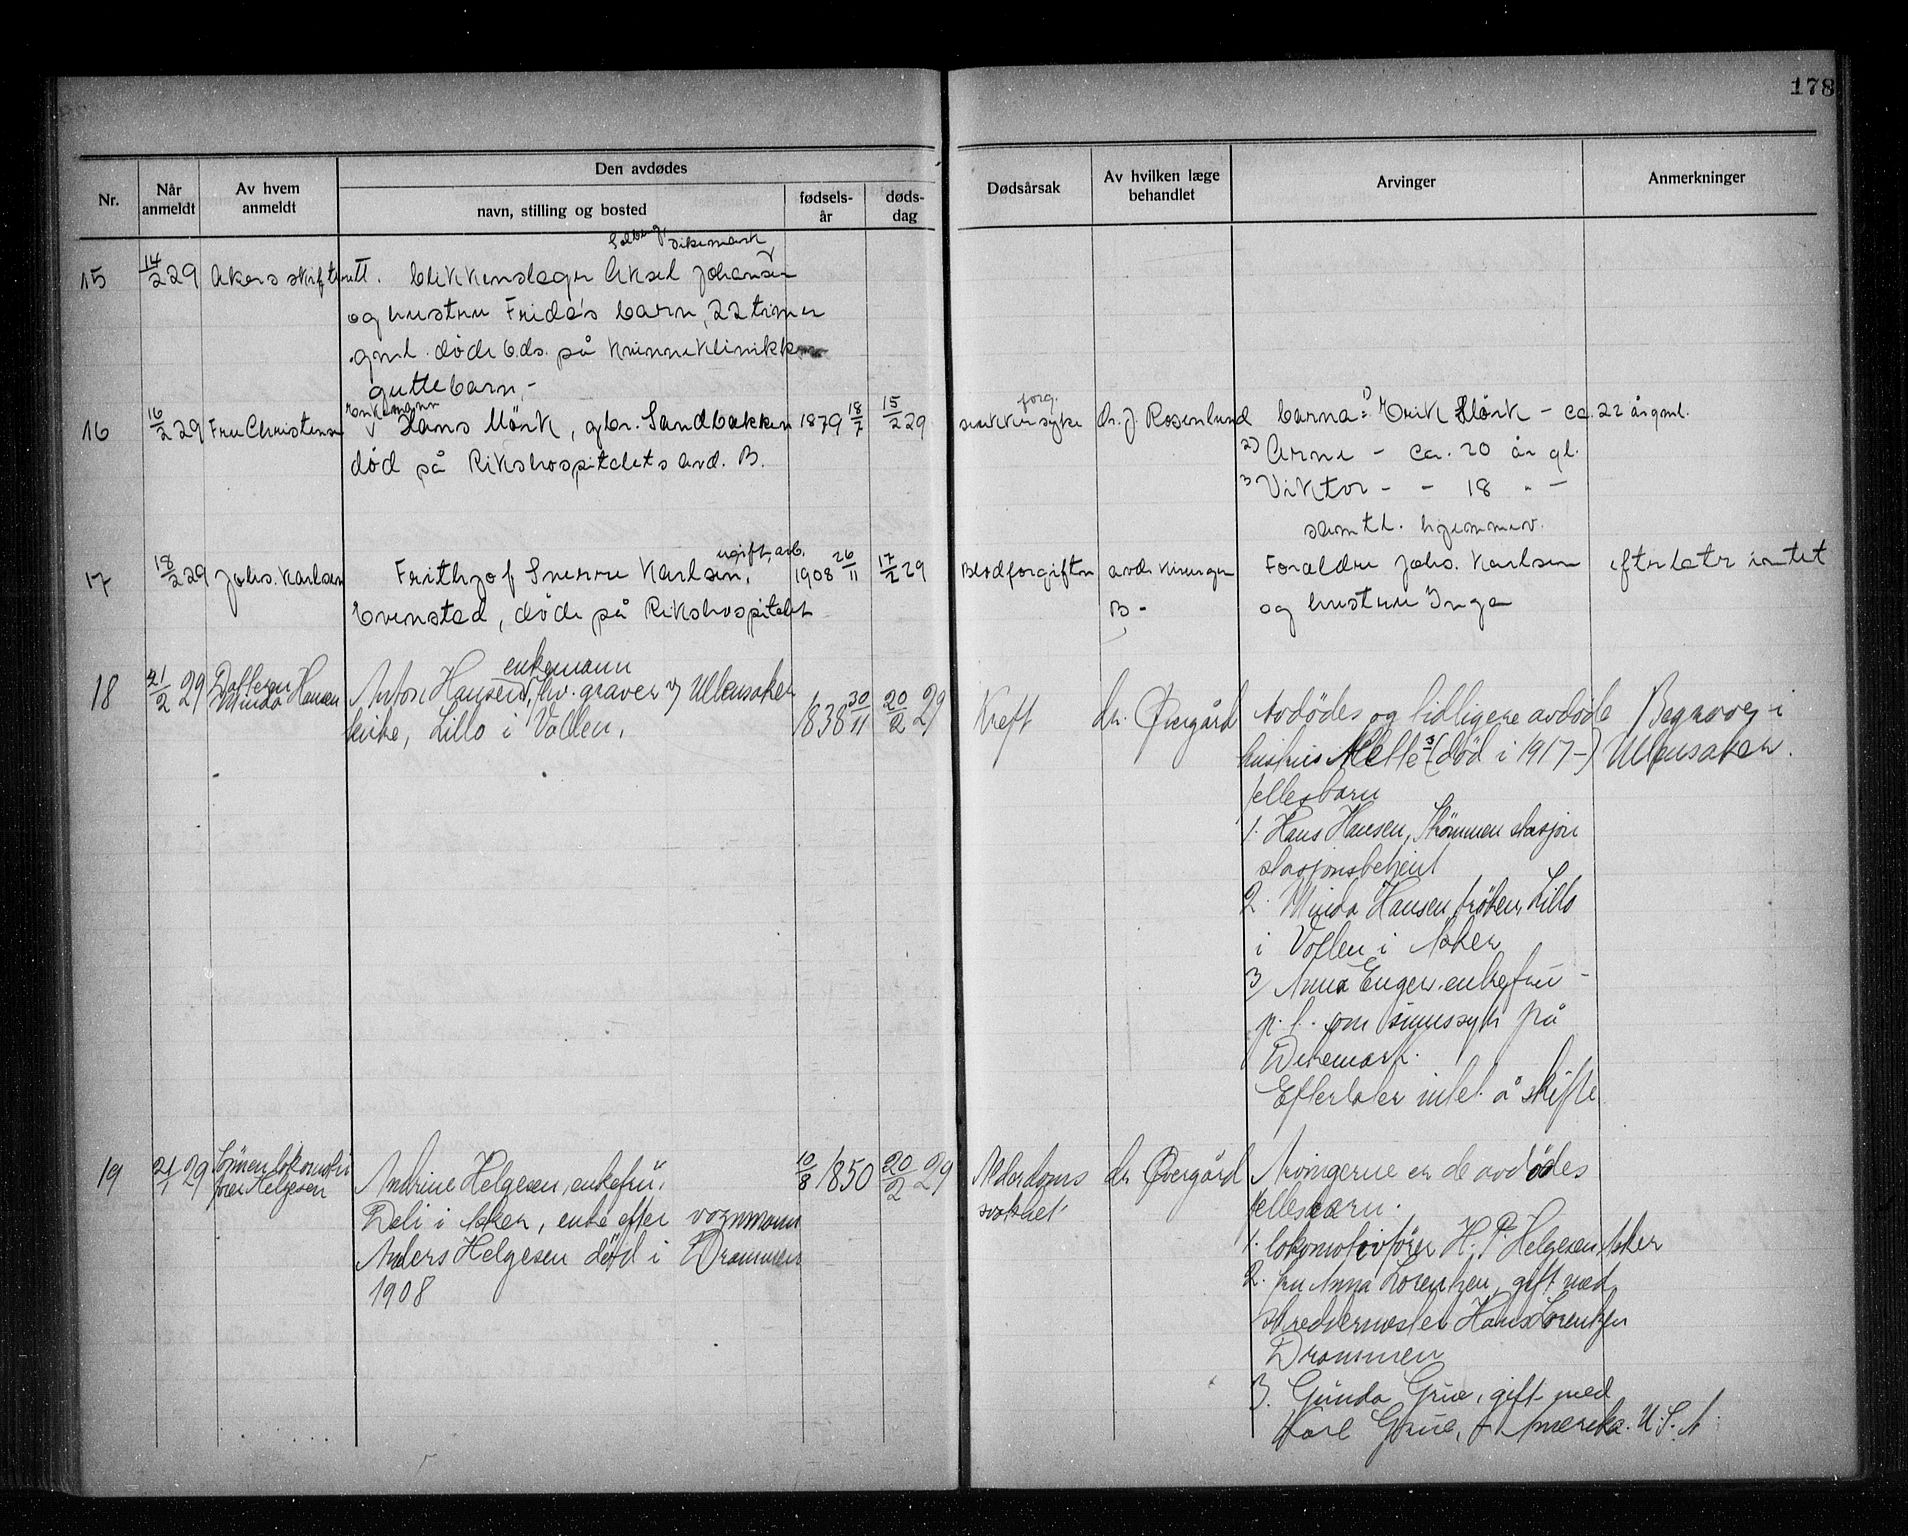 178
Nr. Når anmeldt Av hvem anmeldt Den avdødes navn, stilling og bosted fødsels-år døds-dag Dødsårsak Av hvilken læge behandlet Arvinger Anmerkninger
Dikemark
15 14/2 29 Akers skifterett. blikkenslager Aksel Johansen
og hustru Frida's barn, 22 timer
gml. døde 6ds. på Kvinneklinikken
guttebarn,-
16 16/2 29 Fru Christensen Enkemann Hans Mörk, gbr. Sandbakken 1879 18/7 15/2 29 forg. sukkersyke dr. J. Rosenlund barna: 1) Erik Mörk - ca. 22 år gml.
død på Rikshospitalets avd. B. 2) Arne - ca. 20 år gl.
3 Viktor - - 18 " -
samtl. hjemmev.
17 18/2 29 Johs. Karlsen Frithjof Sverre Karlsen, ugift, arb. 1908 26/11 17/2 29 Blodforgiftn avd. kirurgen Foreldre Johs. Karlsen efterlater intet
Evensted, døde på Rikshospitalet B - og hustru Inga
18 21/2 29 Datteren Minda Hansen Anton Hansen, enkemann fhv. graver v/ Ullensaker 1838 30/11 20/2 29 Kreft dr. Øvergård Avdødes og tidligere avdøde Begraves i
kirke, Lillo i Vollen, hustru (død i 1917-) Ullensaker.
fellesbarn
1. Hans Hansen, Strømmen stasjon
stasjonsbetjent
2. Minda Hansen, frøken, Lillo
i Vollen i Asker
3/ Anna Enger enkefru -
p. t. som sinnssyk på
Dikemark.
Efterlater intet å skifte
19 21/1 29 Sønnen lokomotivfører Helgesen Andrine Helgesen, enkefru, 10/8 1850 20/2 29 Alderdoms dr. Øvergård Arvingerne er de avdødes
Deli i Asker, enke efter vognmann svakhet fellesbarn.
Anders Helgesen død i Drammen 1. lokomotivfører H. P. Helgesen Asker
1908 2. fru Anna Lorentzen, gift med
skreddermester Hans Lorentzen
Drammen
3. Gunda Grue, gift med
Karl Grue, i Amerika. U.S.A